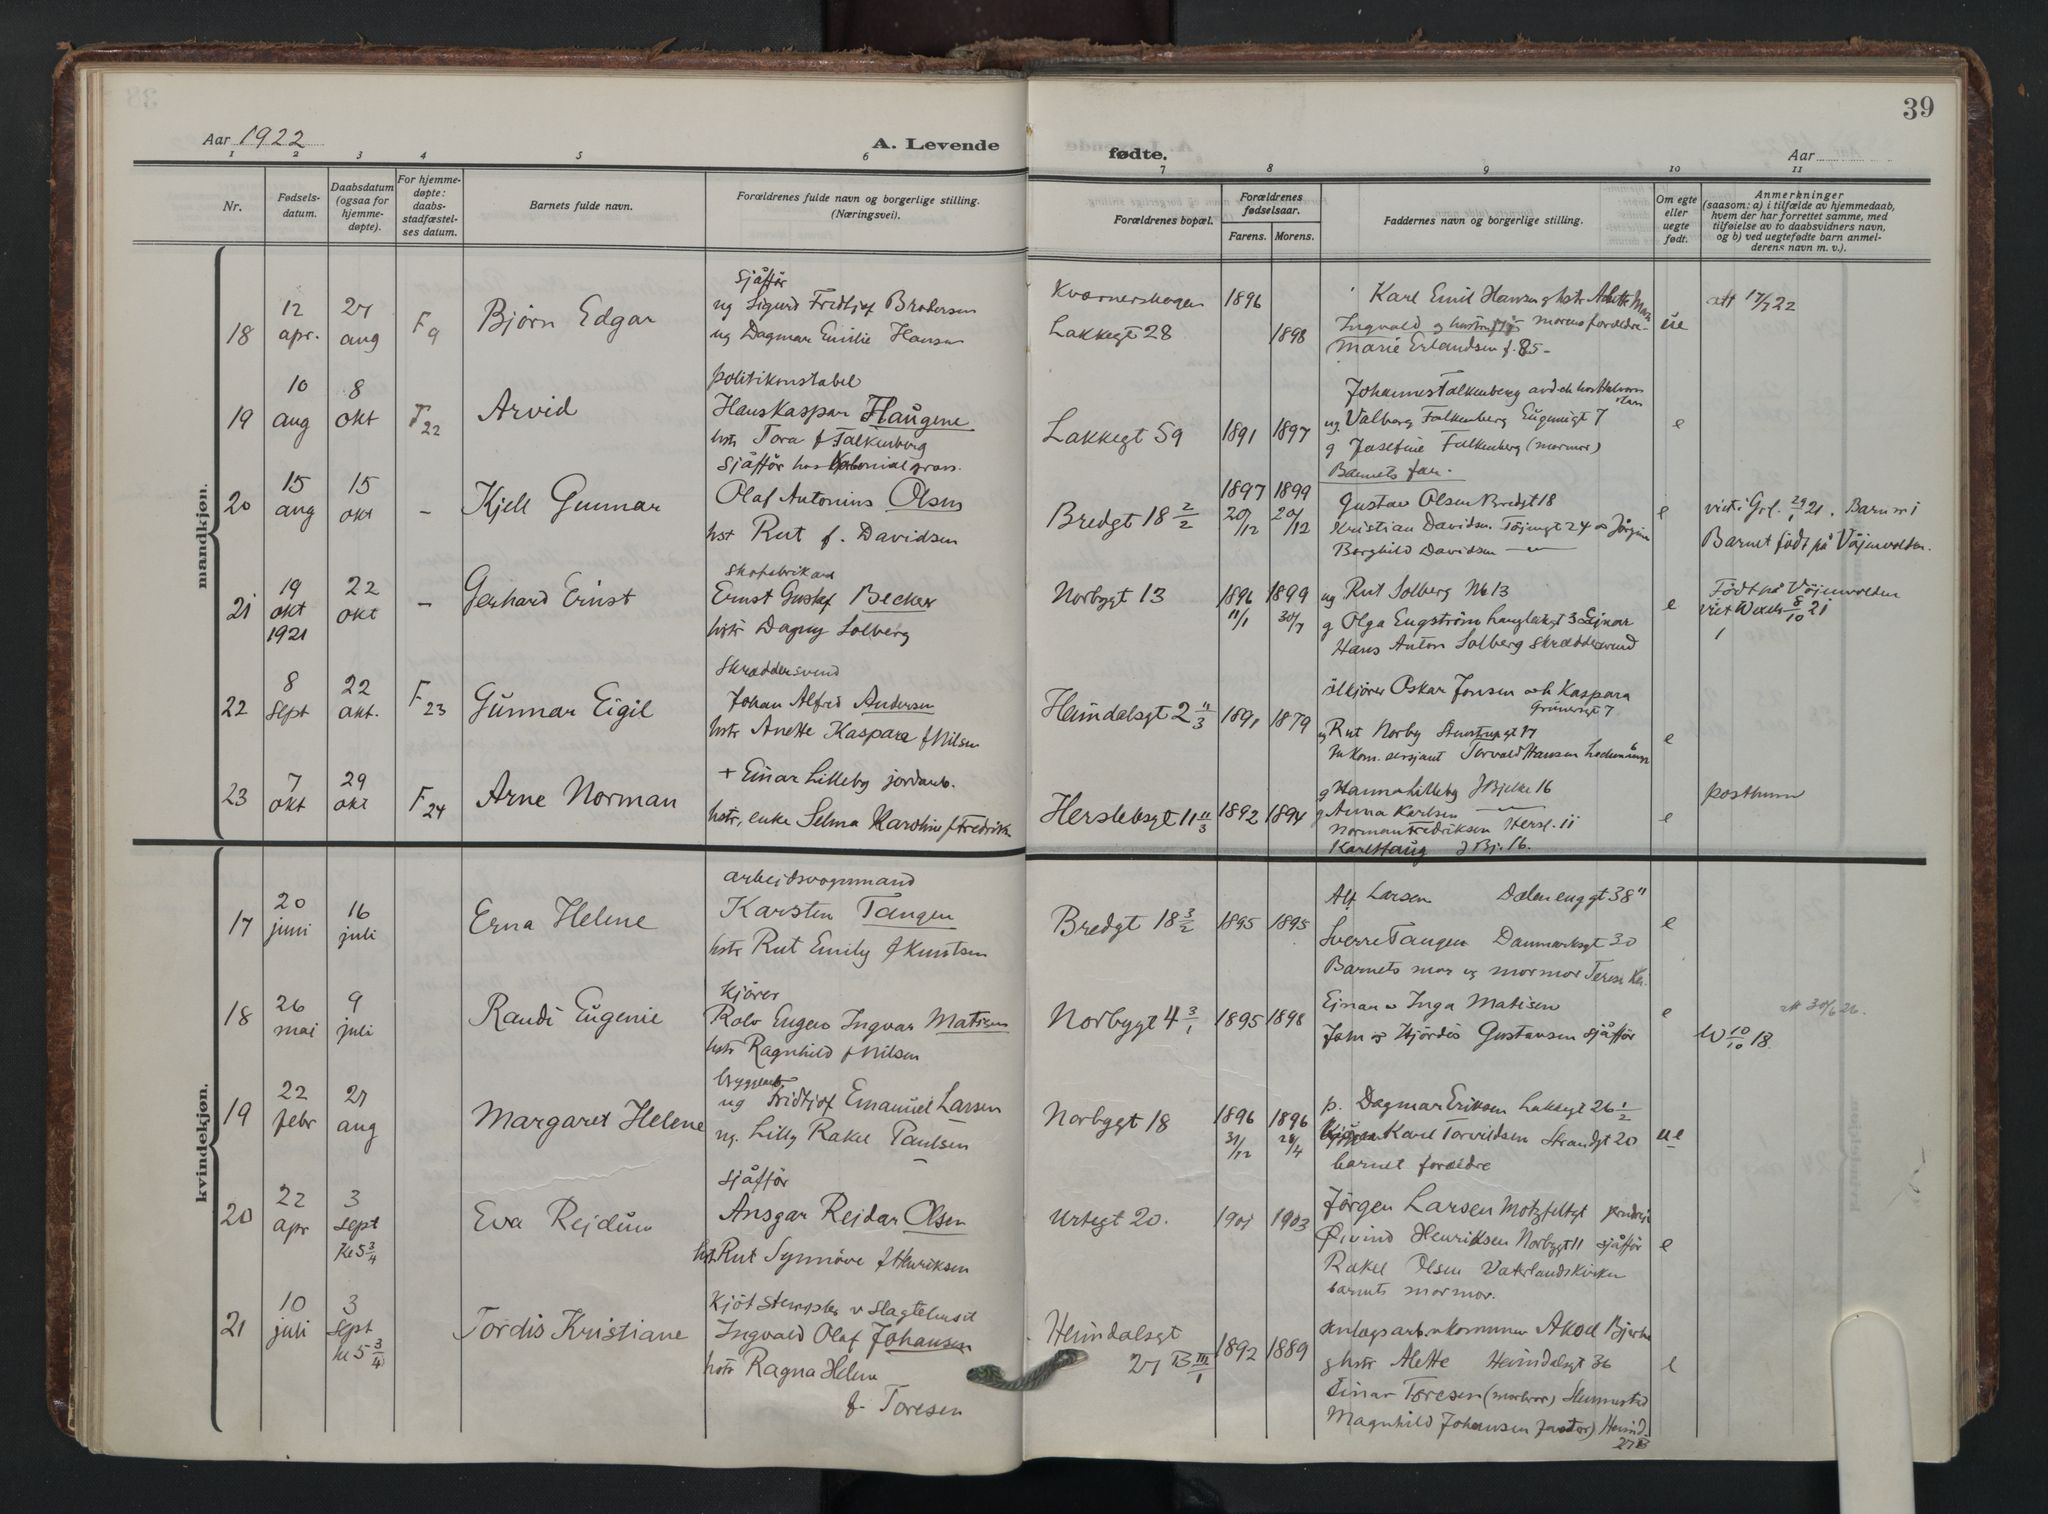 39
Aar 1922
A. Levende
fødte.
Aar
1 2 3 4 5 6 7 8 9 10 11
Nr.
Fødsels-
datum.
Daabsdatum
(ogsaa for
hjemme-
døpte).
For hjemme-
døpte:
daabs-
stadfæstel-
ses datum.
Barnets fulde navn.
Forældrenes fulde navn og borgerlige stilling.
(Næringsvei).
Forældrenes bopæl.
Forældrenes
fødselsaar.
Farens. Morens.
Faddernes navn og borgerlige stilling.
Om egte
eller
uegte
født.
Anmerkninger
(saasom: a) i tilfælde av hjemmedaab,
hvem der har forrettet samme, med
tilføielse av to daabsvidners navn,
og b) ved uegtefødte barn anmel-
derens navn m. v.).
mandkjøn.
18
12
apr.
27
aug
F 9
Bjørn Edgar
sjåffør
ug Sigurd Fridtjof Brodersen
ug Dagmar Emilie Hansen
Kværnerskogen
Lakkegt 28
1896
1898
Karl Emil Hansen g hstr
Ingvald og hustru morens forældre
Marie Erlandsen f. 85-
ue
att 17/7 22
19
10
aug
8
okt
F 22
Arvid
politikonstabel
Hans Kaspar Haugene
hstr Tora f Falkenberg
Lakkegt 59
1891 1897
Johannes Falkenberg
ug Valborg Falkenberg Eugeniigt 7
g Josefine Falkenberg (mormor)
Barnets far.
e
20
15
aug
15
okt
-
Kjell Gunnar
sjåffør hos Kolonial gross.
Olaf Antonius Olsen
hstr Rut f. Davidsen
Bredgt 18 2/2
1897 1899
20/12 20/12
Gustav Olsen Bredgt 18
Kristian Davidsen Tøjengt 24
Borghild Davidsen —
e
viet i Grl. 29/1 21. Barn nr 1
Barnet født på Vøjenvolden.
21
19
okt
1921
22
okt
-
Gerhard Ernst
skofabrikant
Ernst Gustaf Becker
hstr Dagny Solberg
Norbygt 13
1896 1899
11/1 30/7
ug Rut Solberg Nb 13
g Olga Engström
Hans Anton Solberg skræddersvend
e
Født på Vøjenvolden
viet 8/10 21
1
22
8
Sept
22
okt.
F 23
Gunnar Eigil
Skræddersvend
Johan Alfred Andersen
hstr Anette Kaspara f Nilsen
Heimdalsgt 2 II/3
1891 1879
ølkjører Oskar Jonsen og h Kaspara
Grünersgt 7
g Rut Norby
sersjant Torvald Hansen
e
23
7
okt
29
okt
F 24
Arne Norman
+ Einar Lilleby jordarb.
hstr, enke Selma Karoline f Fredriks
Herslebsgt 11 II/3
1892 1894
g Hanna Lilleby J Bjelke 16
g Anna Karlsen —
Norman Fredriksen Hersl. 11
Karl Haug J Bj. 16.
e
posthum
kvindekjøn.
17
20
juni
16
juli
Erna Helene
arbeidsvognmand
Karsten Tangen
hstr Rut Emily f Knutsen
Bredgt 18 3/2
1895 1895
Alf Larsen Dælenenggt 38
Sverre Tangen Danmarksgt 30
Barnets mor og mormor Terese Kn.
e
18
26
mai
9
juli
Randi Eugenie
Kjører
Rolv Eugen Ingvar Matisen
hstr Ragnhild f Nilsen
Norbygt 4 3/1
1895 1898
Ejnar o Inga Matisen
John og Hjördis Gustavsen sjåffør
e
att 30/6 26.
W 10/10 18.
19
22
febr
27
aug
Margaret Helene
ug Fridtjof Emanuel Larsen
ug. Lilly Rakel Paulsen
Norbygt 18
1896 1896
31/12 28/4
p. Dagmar Eriksen Lakkegt 26 1/2
Karl Torvildsen Strandgt 20
barnets forældre
ue
20
22
apr
3
sept
Kl 5 3/4
Eva Rejdun
sjåffør
Ansgar Rejdar Olsen
hst Rut Synnöve f Henriksen
Urtegt 20.
1901 1903
Jørgen Larsen Motzfeltgt
Øivind Henriksen Norbygt 11 sjåffør
Rakel Olsen Vaterlandskirken
barnets mormor.
e
21
10
juli
3
sept
kl 5 3/4
Tordis Kristiane
Kjøtstempler v Slagtehuset
Ingvald Olaf Johansen
hstr Ragna Helene
f. Toresen
Heimdalsgt
27 B III/1
1892 1889
anlægsarb. v kommunen Aksel Bjerke
g hstr Alette Heimdalsgt 36
Einar Toresen (morbror)
Magnhild Johansen (faster) Heimd.
27 B
e